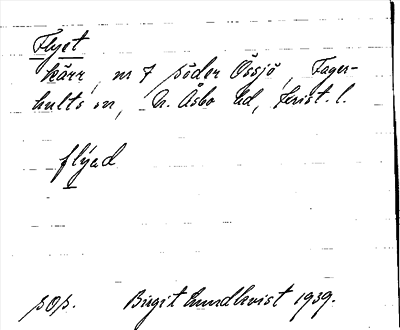 Flyet
kärr, nr 7 söder Össjö, Fager-
hults sn, N. Åsbo hd, Krist. l.
flýad
pop. Birgit Lundkvist 1939.